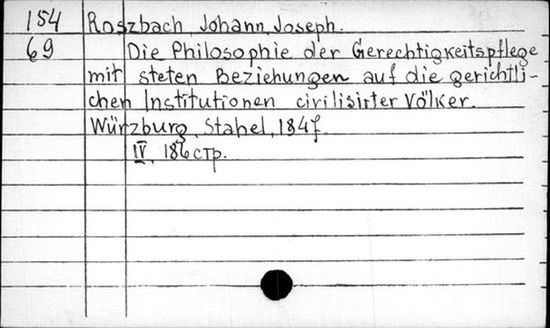 154 Roszbach, Johann, Joseph.
69 Die Philosophie der Gerechtigkeitspflege
mit steten Beziehungen auf die gerichtli-
chen Institutionen civilisirter Völker.
Würzburg, Stahel, 1847.
IV, 186 стр.